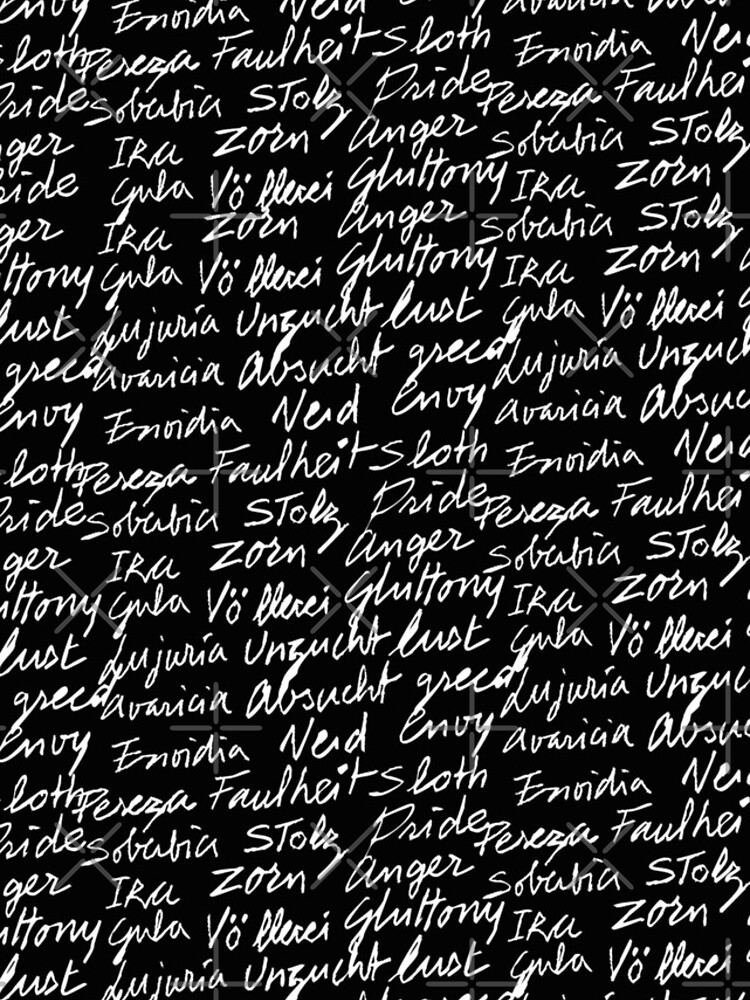 Envy Envidia Neid avaricia
Sloth Pereza Faulheit Sloth Envidia Nei
Pride Soberbia STolz Pride Pereza Faulhei
nger IRa Zorn anger Soberbia STolz
ride gula Völlerei Gluttony IRa Zorn
ger IRa Zorn anger Soberbia STolz
ttony gula Völlerei Gluttony IRa Zorn
lust Lujuria Unzucht lust gula Völlerei
greed avaricia Absucht greed Lujuria Unzuch
Envy Envidia Neid Envy avaricia Absuc
Sloth Pereza Faulheit Sloth Envidia Ne
Pride Soberbia STolz Pride Pereza Faulhei
ger IRa Zorn anger Soberbia STolz
uttony gula Völlerei Gluttony IRa Zorn
lust Lujuria Unzucht lust gula Völlerei
greed avaricia Absucht greed Lujuria Unzuc
Envy Envidia Neid Envy avaricia Absu
loth Pereza Faulheit Sloth Envidia Nei
ride Soberbia STolz Pride Pereza Faulhei
ger IRa Zorn anger Soberbia STolz
ttony gula Völlerei Gluttony IRa Zorn
lust Lujuria Unzucht lust gula Völlerei